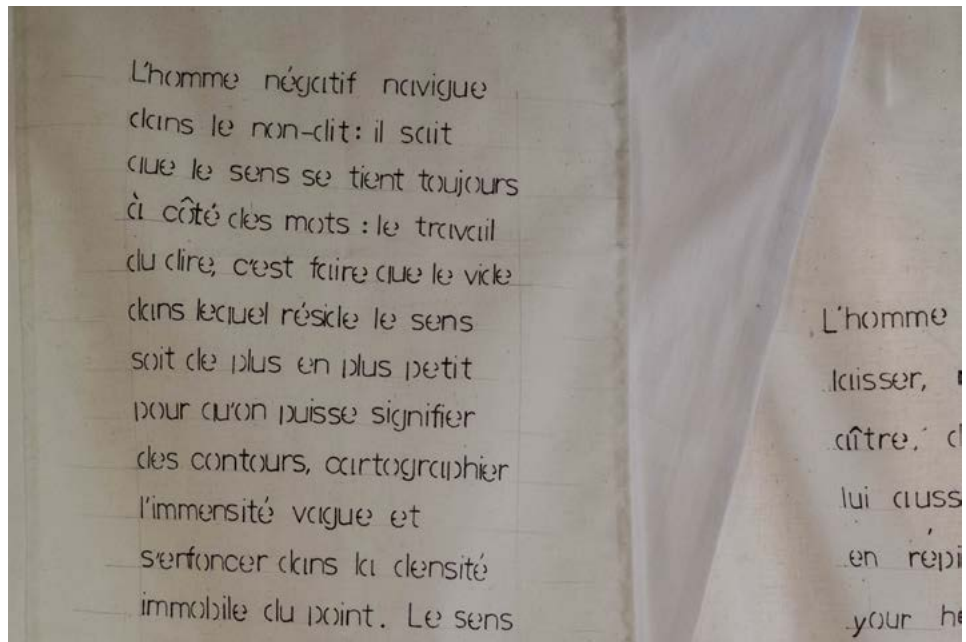 L'homme négatif navigue
dans le non-dit : il sait
que le sens se tient toujours
à côté des mots : le travail
du dire, c'est faire que le vide
dans lequel réside le sens
soit de plus en plus petit
pour qu'on puisse signifier
des contours, cartographier
l'immensité vague et
s'enfoncer dans la densité
immobile du point. Le sens
L'homme
laisser,
aître,
lui auss
en répi
your he